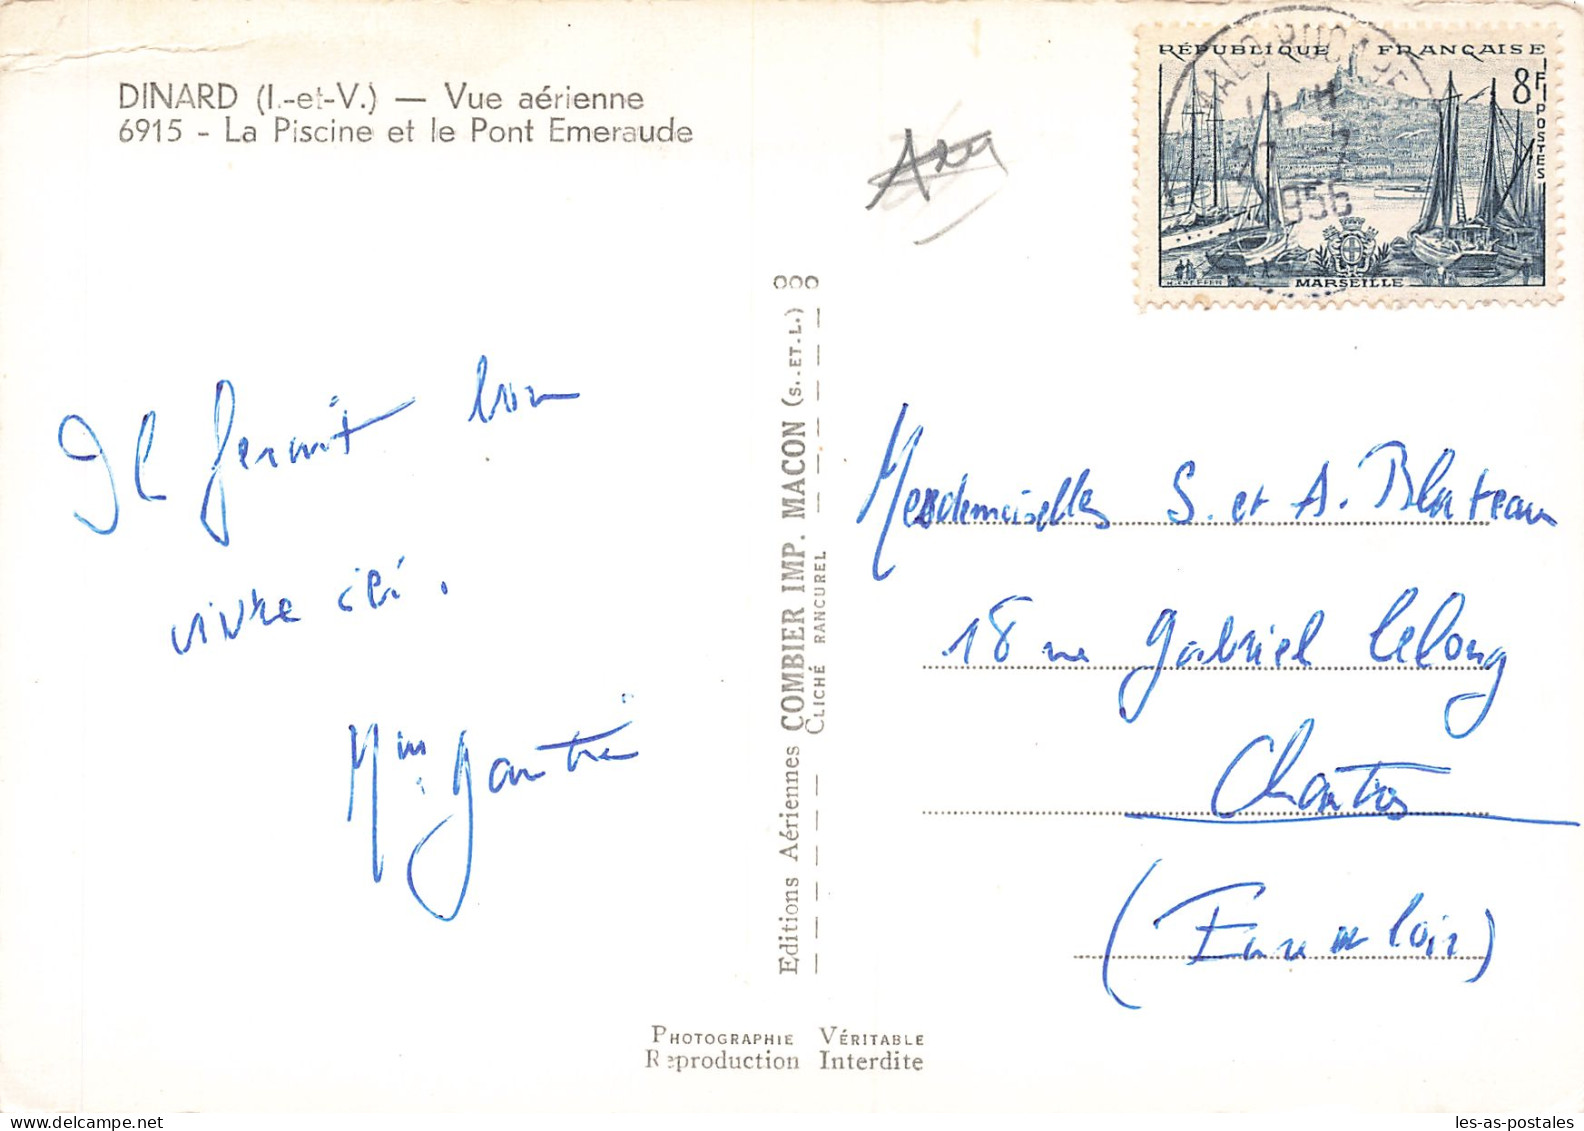 DINARD (I.-et-V.) — Vue aérienne
6915 - La Piscine et le Pont Emeraude
RÉPUBLIQUE FRANÇAISE
8F
POSTES
MARSEILLE
10 H
1956
Il ferait bon
vivre ici.
Mme Gautier
Editions Aériennes COMBIER IMP. MACON (S.-ET-L.)
CLICHÉ RANCUREL
Mesdemoiselles S. et A. Blateau
18 rue Gabriel Lelong
Chartres
(Eure et Loir)
PHOTOGRAPHIE VÉRITABLE
Reproduction Interdite
les-as-postales